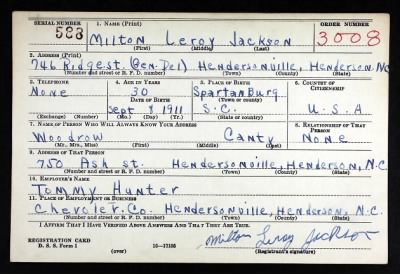 SERIAL NUMBER 1. NAME (Print) ORDER NUMBER
583 Milton Leroy Jackson 3008
(First) (Middle) (Last)
2. ADDRESS (Print)
746 Ridge st. (Gen. Del) Hendersonville, Henderson, N.C.
(Number and street or R. F. D. number) (Town) (County) (State)
3. TELEPHONE 4. AGE IN YEARS 5. PLACE OF BIRTH 6. COUNTRY OF CITIZENSHIP
None 30 Spartanburg
DATE OF BIRTH (Town or county)
Sept 1 1911 S.C. U.S.A
(Exchange) (Number) (Mo.) (Day) (Yr.) (State or country)
7. NAME OF PERSON WHO WILL ALWAYS KNOW YOUR ADDRESS 8. RELATIONSHIP OF THAT PERSON
Woodrow Canty None
(Mr., Mrs., Miss) (First) (Middle) (Last)
9. ADDRESS OF THAT PERSON
750 Ash st. Hendersonville, Henderson, N.C.
(Number and street or R. F. D. number) (Town) (County) (State)
10. EMPLOYER'S NAME
Tommy Hunter
11. PLACE OF EMPLOYMENT OR BUSINESS
Chevroler. Co. Hendersonville, Henderson, N.C.
(Number and street or R. F. D. number) (Town) (County) (State)
I AFFIRM THAT I HAVE VERIFIED ABOVE ANSWERS AND THAT THEY ARE TRUE.
REGISTRATION CARD
D. S. S. Form 1 (over) 16—17105 Milton Leroy Jackson